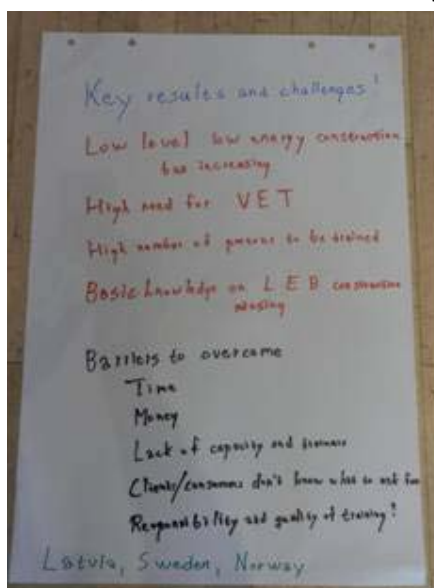 Key results and challenges!
Low level low energy construction
but increasing
High need for VET
High number of persons to be trained
Basic knowledge on LEB construction
missing
Barriers to overcome
Time
Money
Lack of capacity and
Clients/consumers don't know what to ask for
Responsibility and quality of training!
Latvia, Sweden, Norway